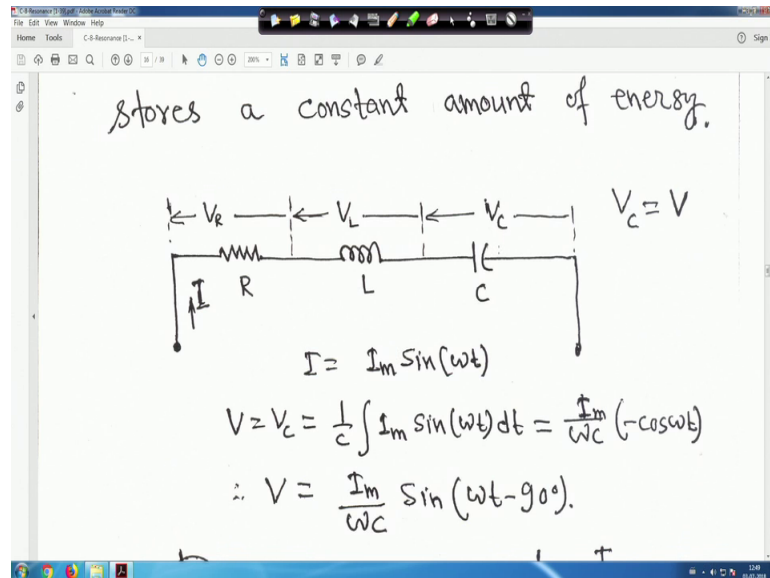 C-8-Resonance [1-39].pdf - Adobe Acrobat Reader DC
File Edit View Window Help
Home Tools C-8-Resonance [1-... × Sign
16 / 39 200%
stores a constant amount of energy.
V_R V_L V_C V_C = V
I R L C
I = I_m Sin(ωt)
V = V_C = 1/C ∫ I_m Sin(ωt) dt = I_m/ωC (-cosωt)
∴ V = I_m/ωC Sin(ωt-90°).
12:49